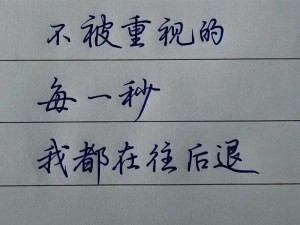 不被重视的
每一秒
我都在往后退